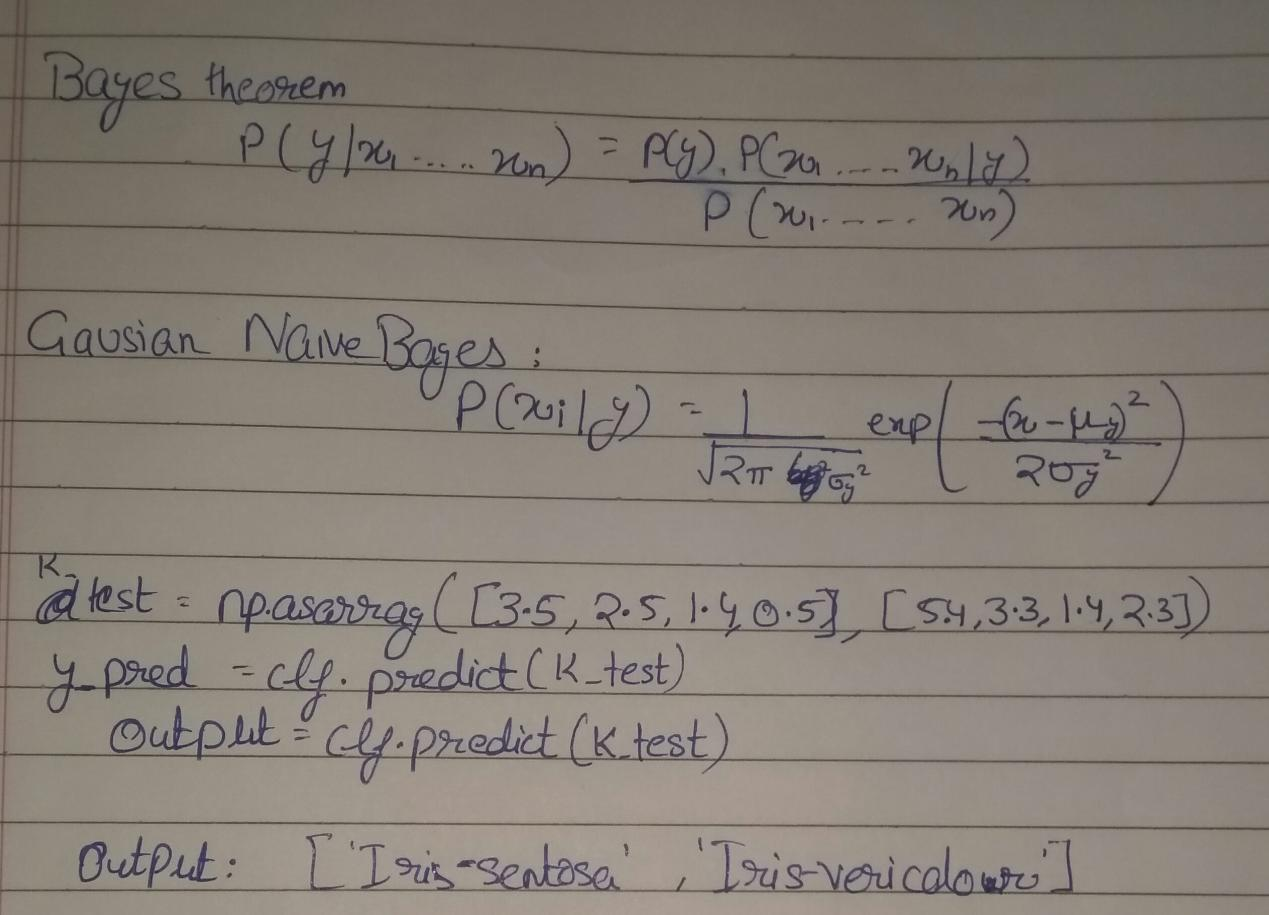 Bayes theorem
P(y|x₁ ..... xₙ) = P(y). P(x₁ ..... xₙ|y) / P(x₁. ..... xₙ)
Gausian Naive Bayes :
P(xi|y) = 1 / √2π σy² exp( -(x-μy)² / 2σy² )
K_test = np.asarray([3.5, 2.5, 1.4, 0.5], [5.4, 3.3, 1.4, 2.3])
y_pred = clf.predict(K_test)
Output = clf.predict(K_test)
Output: ['Iris-sentosa' , 'Iris-vericolour']